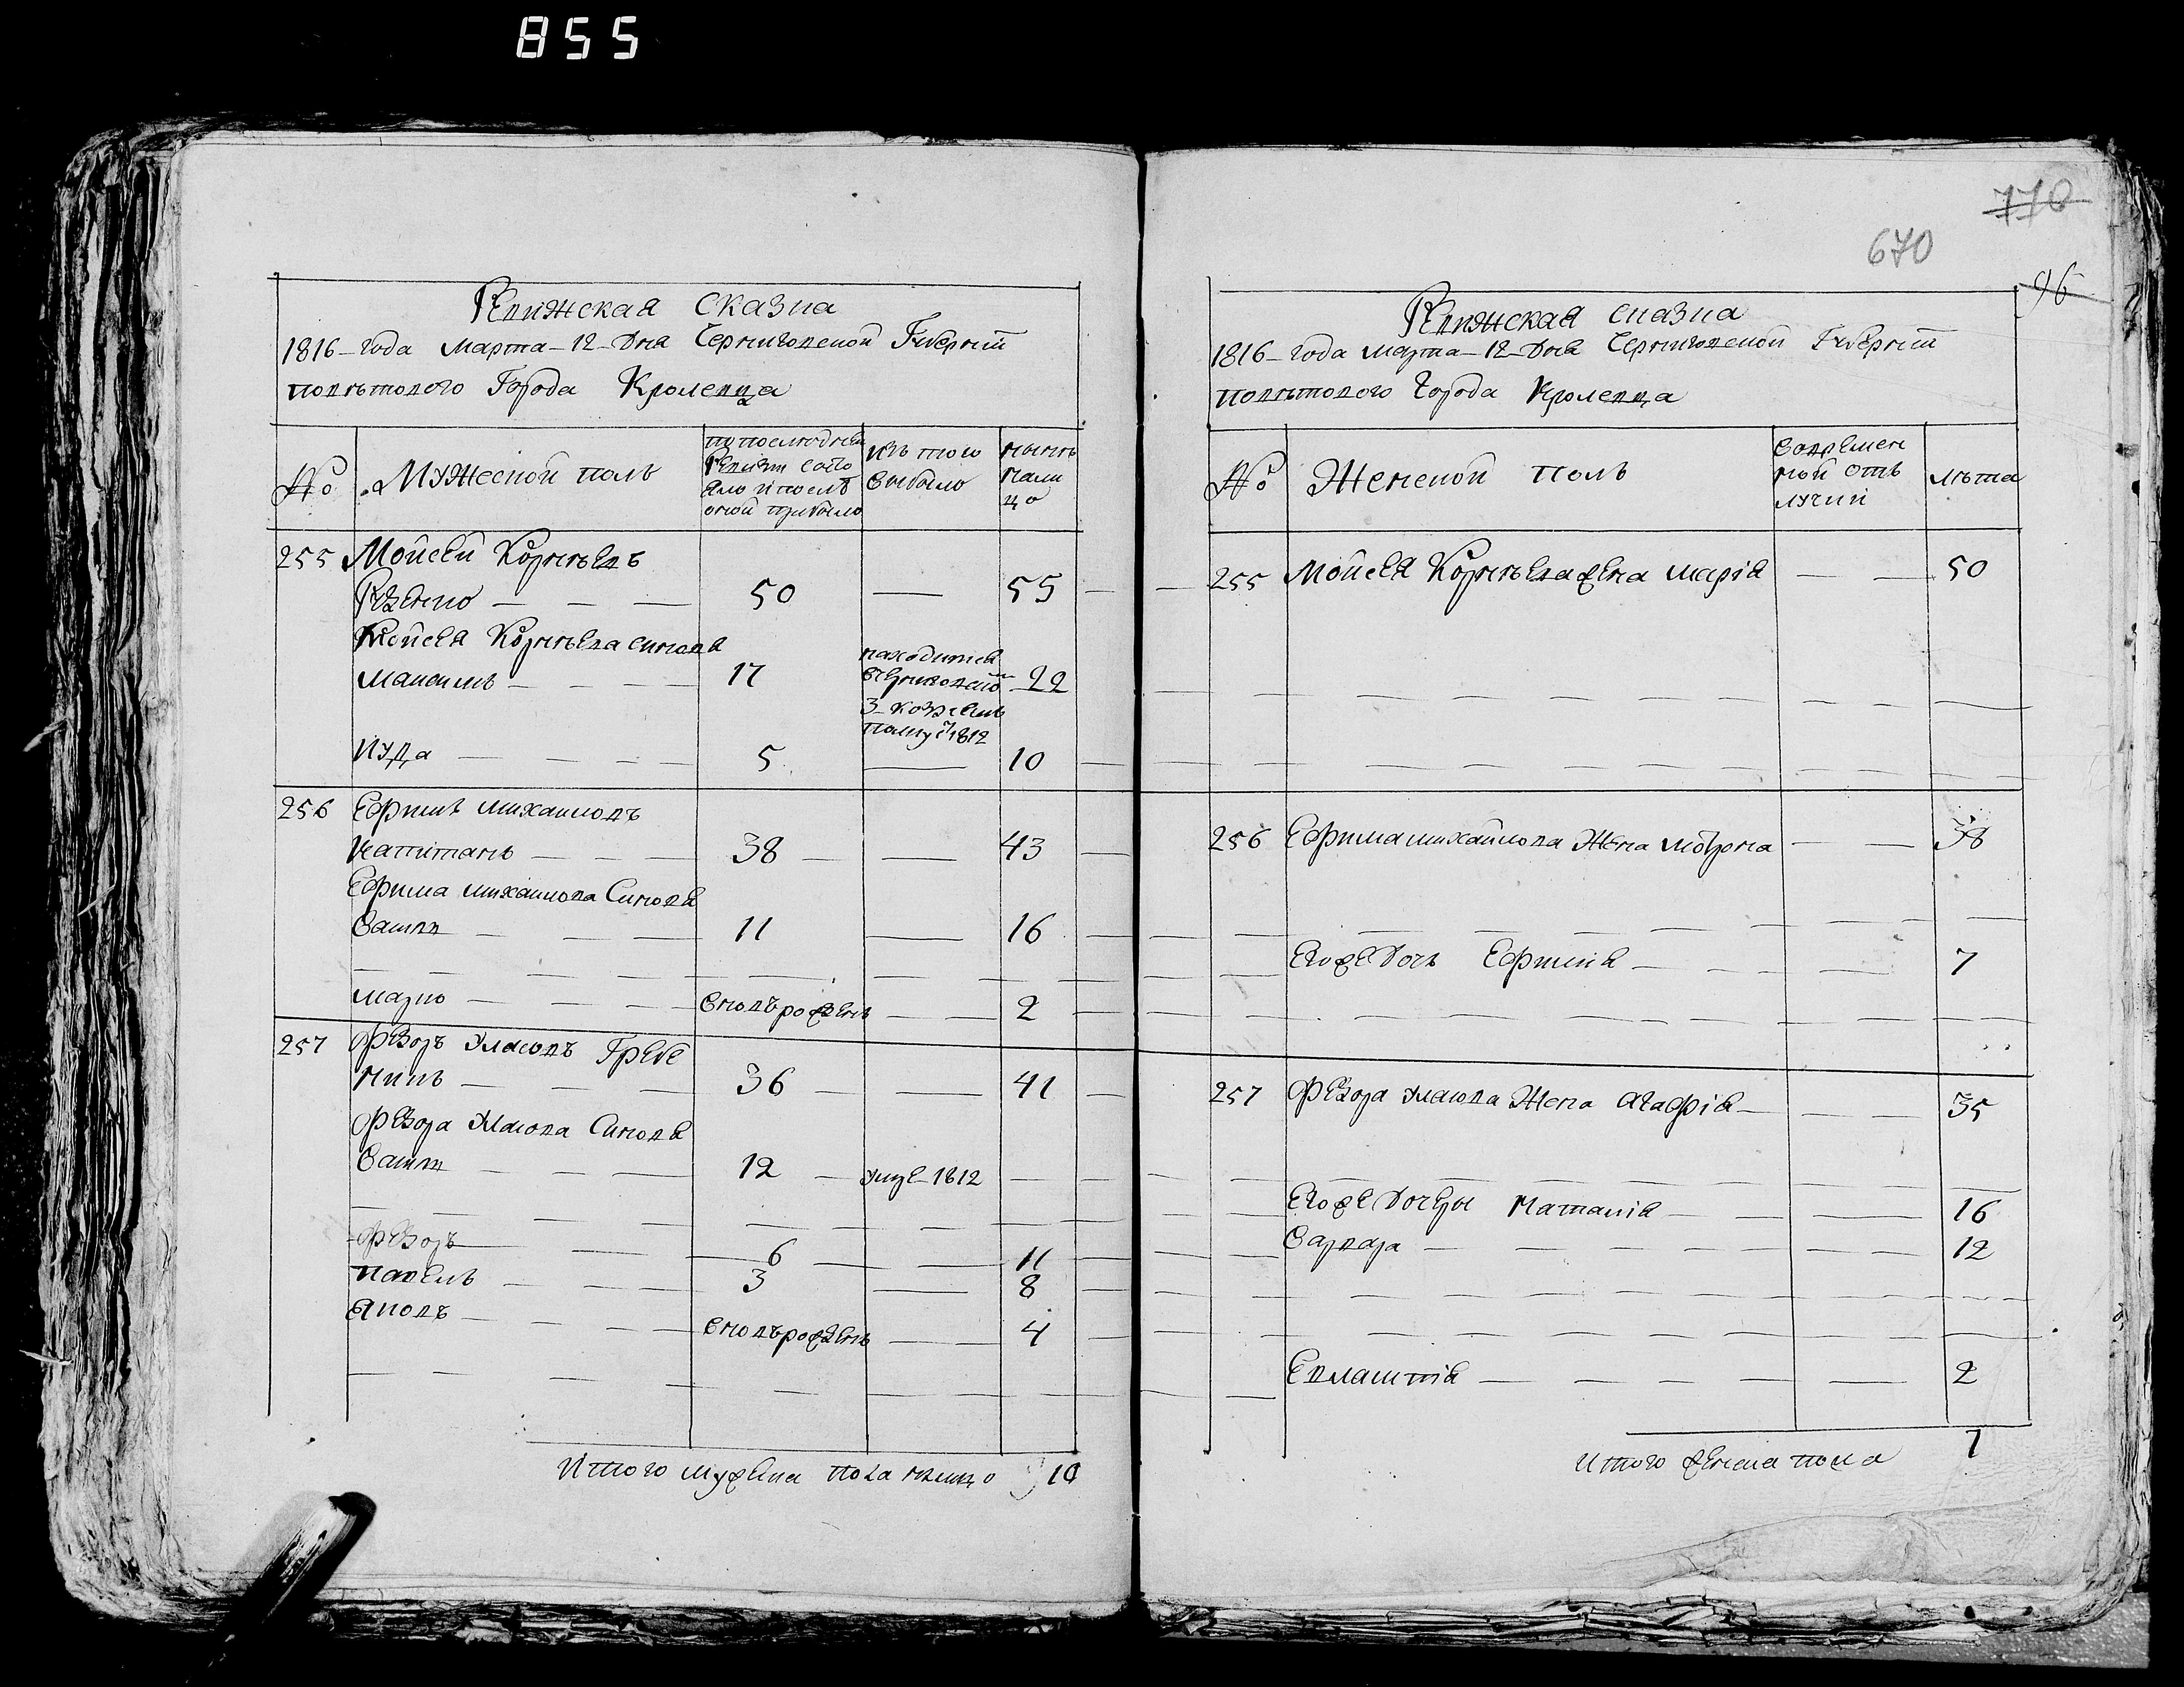 855
770
670
96
Ревижская сказка
1816-года Марта-12-Дня Черниговской Губернии
повѣтового Города Кролевца
№ Мужеской полъ
по последней ревизии состояло и послѣ оной прибыло
изъ того выбыло
нынѣ налицо
255 Мойсей Корнѣевъ
50 — 55
Мойсея Корнѣева синовя
Максимъ — 17
находится в Черниговско 3-козачемъ полку с 1812
22
Иуда — 5 — 10
256 Ефимъ Михаиловъ
Капитанъ — 38 — 43
Ефима Михаилова Синовя
11 — 16
Марко — вновърожденъ — 2
257 Федоръ Власовъ Гребе
никъ — 36 — 41
Федора Власова Синовя
12 — умре-1812
Федоръ — 6 — 11
Павелъ — 3 — 8
Яковъ — вновърожденъ — 4
Итого мужеска пола налицо 10
Ревижская сказка
1816-года Марта-12-Дня Черниговской Губернии
повѣтового города Кролевца
№ Женской полъ
Вовремен
ной отъ
лучки
лѣта
255 Мойсея Корнѣева жена Марія — 50
256 Ефима Михайлова Жена Мотрона — 38
Егоже Дочь Ефимія — 7
257 Федора Власова Жена Агафія — 35
Егоже Дочери Наталія — 16
Варвара — 12
Евлампія — 2
Итого женска пола 7